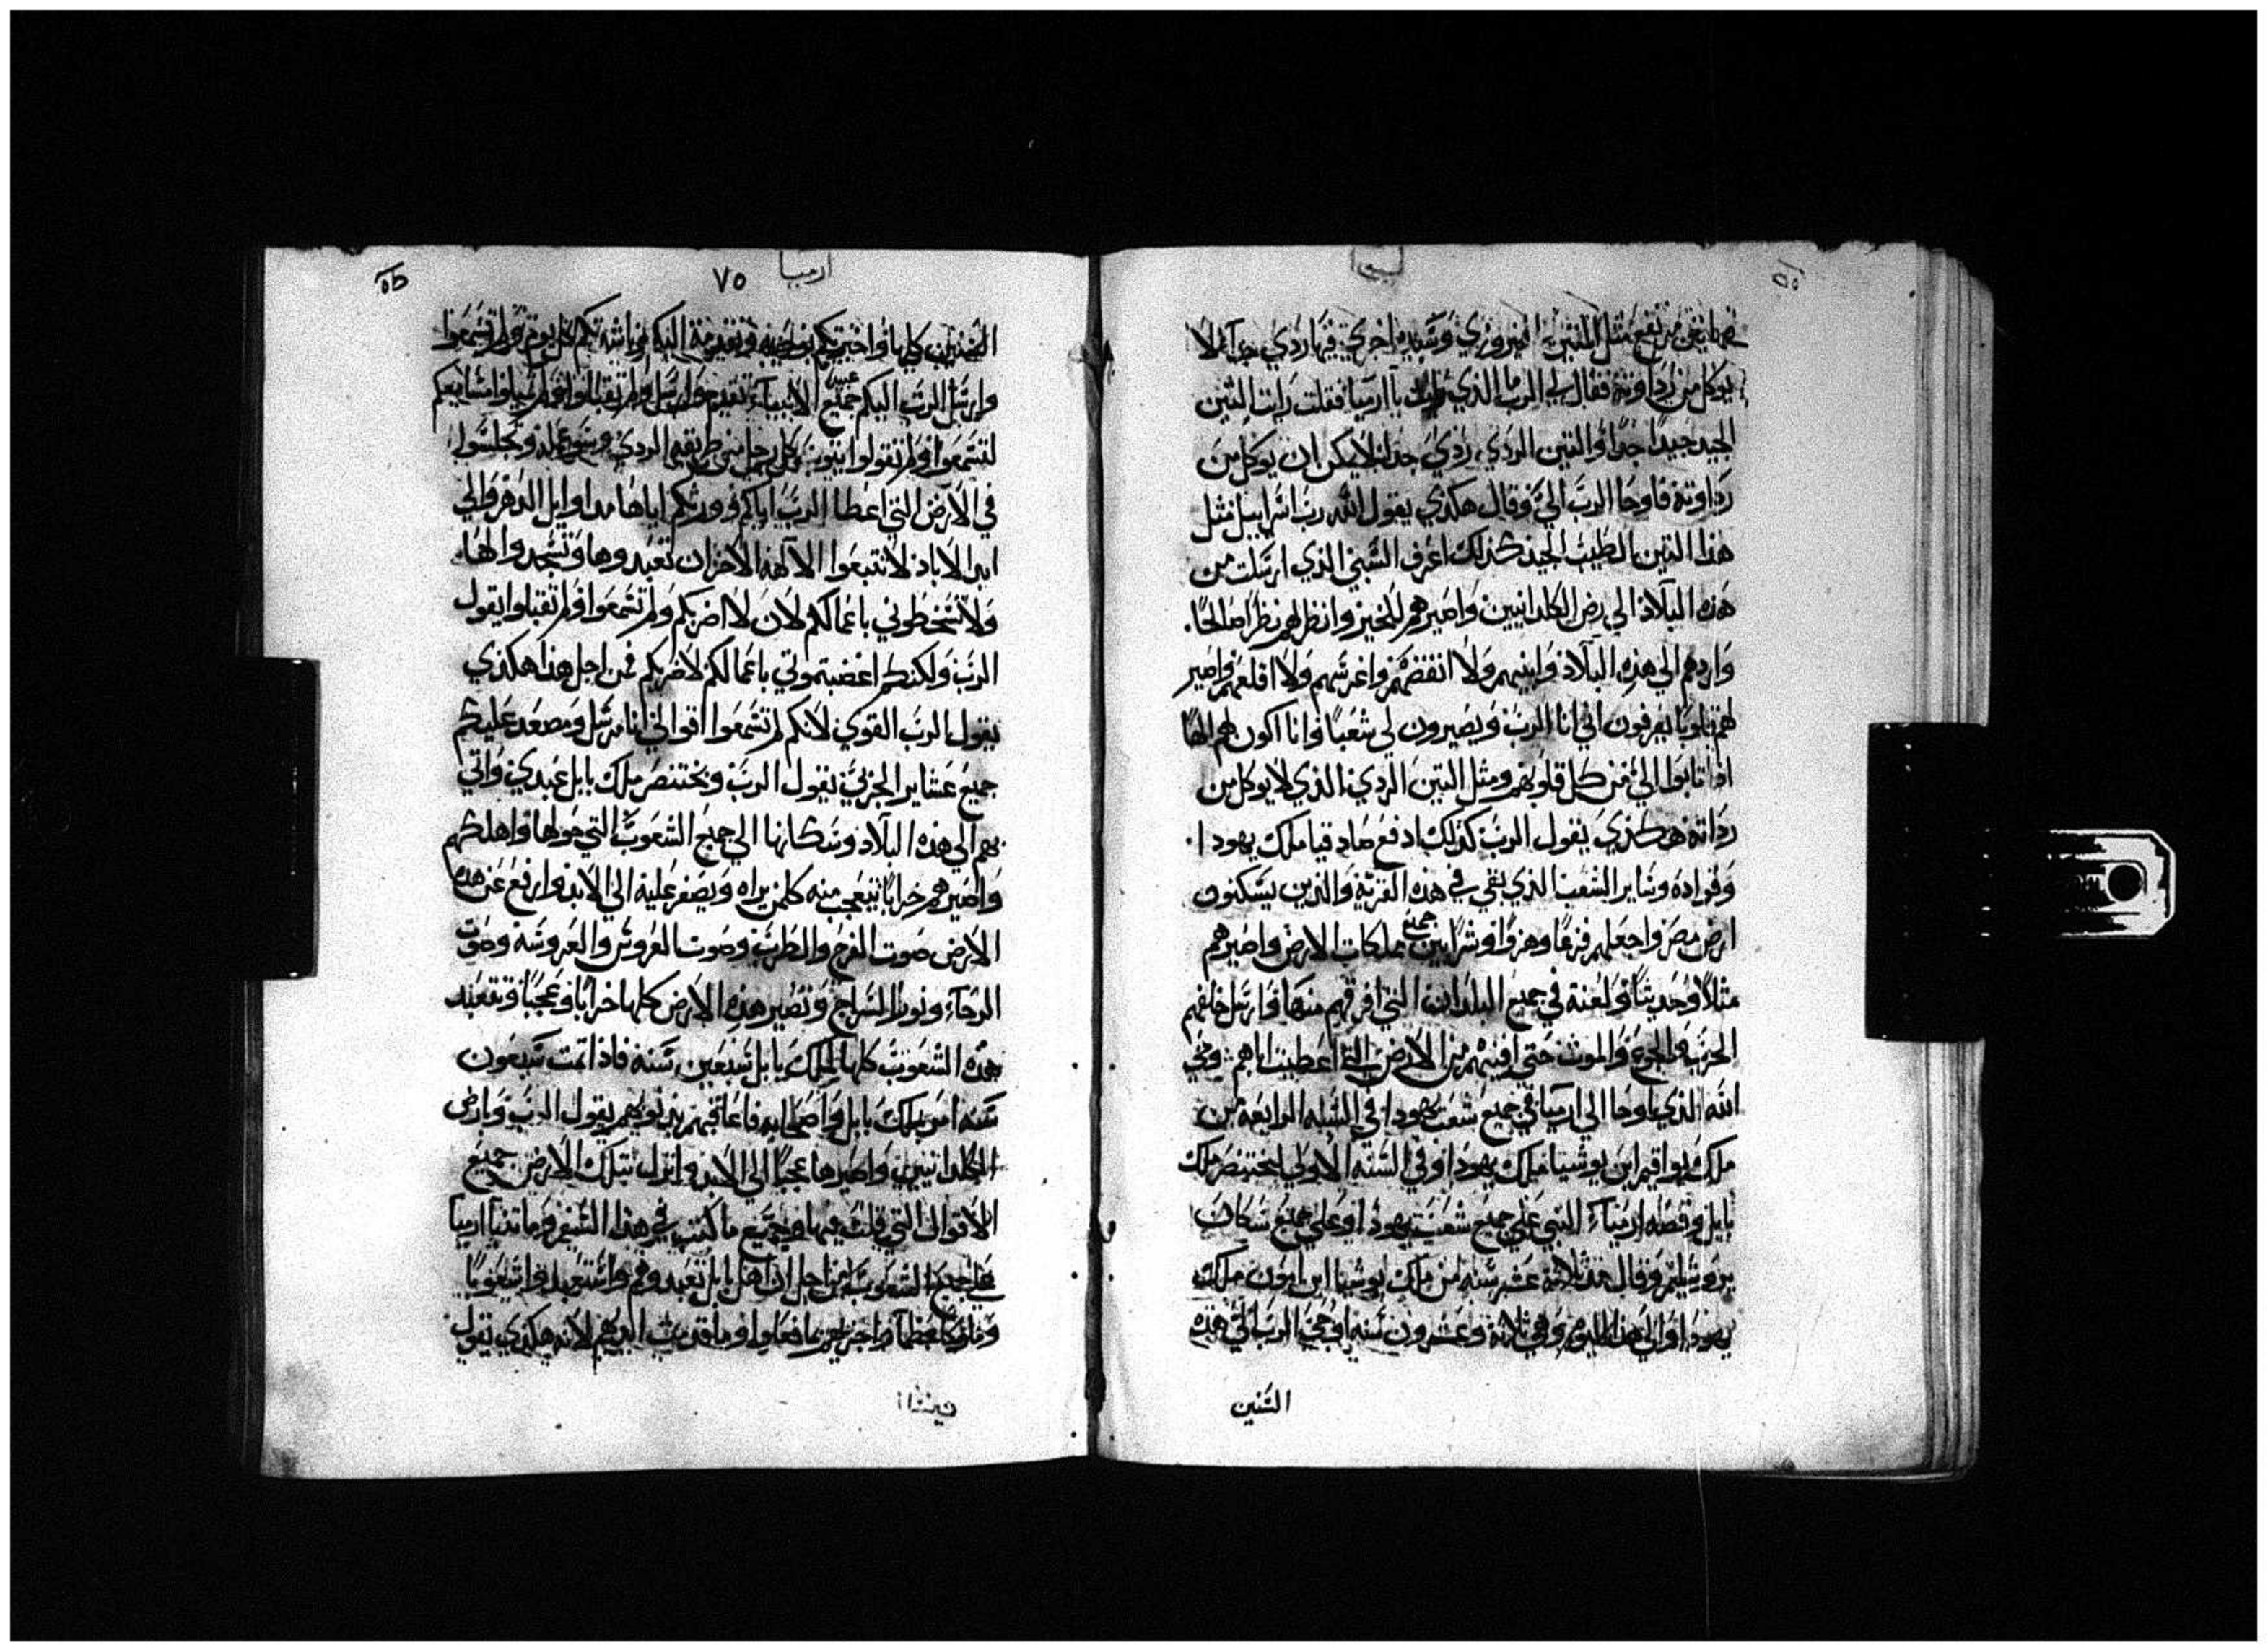 يوكل من رداوته فقال لي الرب ما الذي رايت يا ارميا فقلت رايت التين
الجيد جيدًا جدًا والتين الردي ردي جدا لا يمكن ان يوكل من
رداوته فاوحا الرب اليَّ وقال هكذي يقول الله رب اسراييل مثل
هذا التين الطيب الجيد كذلك اعرف السبي الذي ارسلت من
هذه البلاد الي رض الكلدانيين واصيرهم للخير وانظر لهم نظرًا صالحًا.
واردهم الي هذه البلاد وابنيهم ولا انقضهم واغرسهم ولا اقلعهم واصير
لهم قلوبا يعرفون اني انا الرب ويصيرون لي شعبًا وانا اكون لهم الهًا
اذا تابوا الي من كل قلوبهم ومثل التين الردي الذي لا يوكل من
رداته هكذي يقول الرب كذلك ادفع صادقيا ملك يهودا.
وقواده وساير الشعب الذي بقي في هذه القرية والذين يسكنون
ارض مصر واجعلهم فزعًا وهزوًا وشرًا بين جميع مملكات الارض واصيرهم
مثلًا وحديثًا ولعنة في جميع البلدان التي افرقهم منها وارسل خلفهم
الحرب والجوع والموت حتى افنيهم من الارض التي اعطيت اباهم وحي
الله الذي اوحا الي ارميا في جميع شعب يهودا في السنه الرابعة من
ملك يواقيم ابن يوشيا ملك يهودا وفي السنة الاولى لبختنصر ملك
بابل وقصه ارمياء النبي علي جميع شعب يهودا وعلي جميع سكان
يروشليم وقال منذ ثلاثة عشر سنه من ملك يوشيا ابن امون ملك
يهودا والي هذا اليوم وهي ثلاثة وعشرون سنه اوحي الرب الي هذه
السنين
٧٥
ارميا
السنين كلها واخبرتكم
وارسل الرب اليكم جميع عبيده الانبياء
لتسمعوا ولم تقولوا يتوب كل رجل من طريقه الردي وسو عمله وتجلسوا
في الارض التي اعطا الرب اباكم وورثكم اياها من اوايل الدهر والي
ابد الاباد لا تتبعوا الالهة الاخر ان تعبدوها وتسجدوا لها.
ولا تسخطوني باعمالكم لان لا اضربكم ولم تسمعوا ولم تقبلوا يقول
الرب ولكنكم اغضبتموني باعمالكم لاضربكم فمن اجل هذا هكذي
يقول الرب القوي لانكم لم تسمعوا اقوالي انا مرسل ومصعد عليكم
جميع عشاير الجزبي يقول الرب وبختنصر ملك بابل عبدي واتي
بهم الي هذه البلاد وسكانها الي جميع الشعوب التي حولها واهلكهم
واصيرهم خرابا يتعجب منه كلمن يراه ويصفر عليه الي الابد وارفع عن هذه
الارض صوت الفرح والطرب وصوت العروس والعروسه وصوت
الرحاء ونور السراج وتصير هذه الارض كلها خرابا وعجبا وتتعبد
هذه الشعوب كلها لملك بابل سبعين سنه فاذا تمت سبعون
سنه امر بملك بابل واصحابه فاعاقبهم بذنوبهم يقول الرب وارض
الكلدانيين واصيرها عجبًا الي الابد وانزل بتلك الارض جميع
الاقوال التي قلت فيها وجميع ما كتب في هذا السفر وما تنبا ارميا
علي جميع الشعوب من اجل ان اهل بابل تعبدوهم واستعبدوا شعوبًا